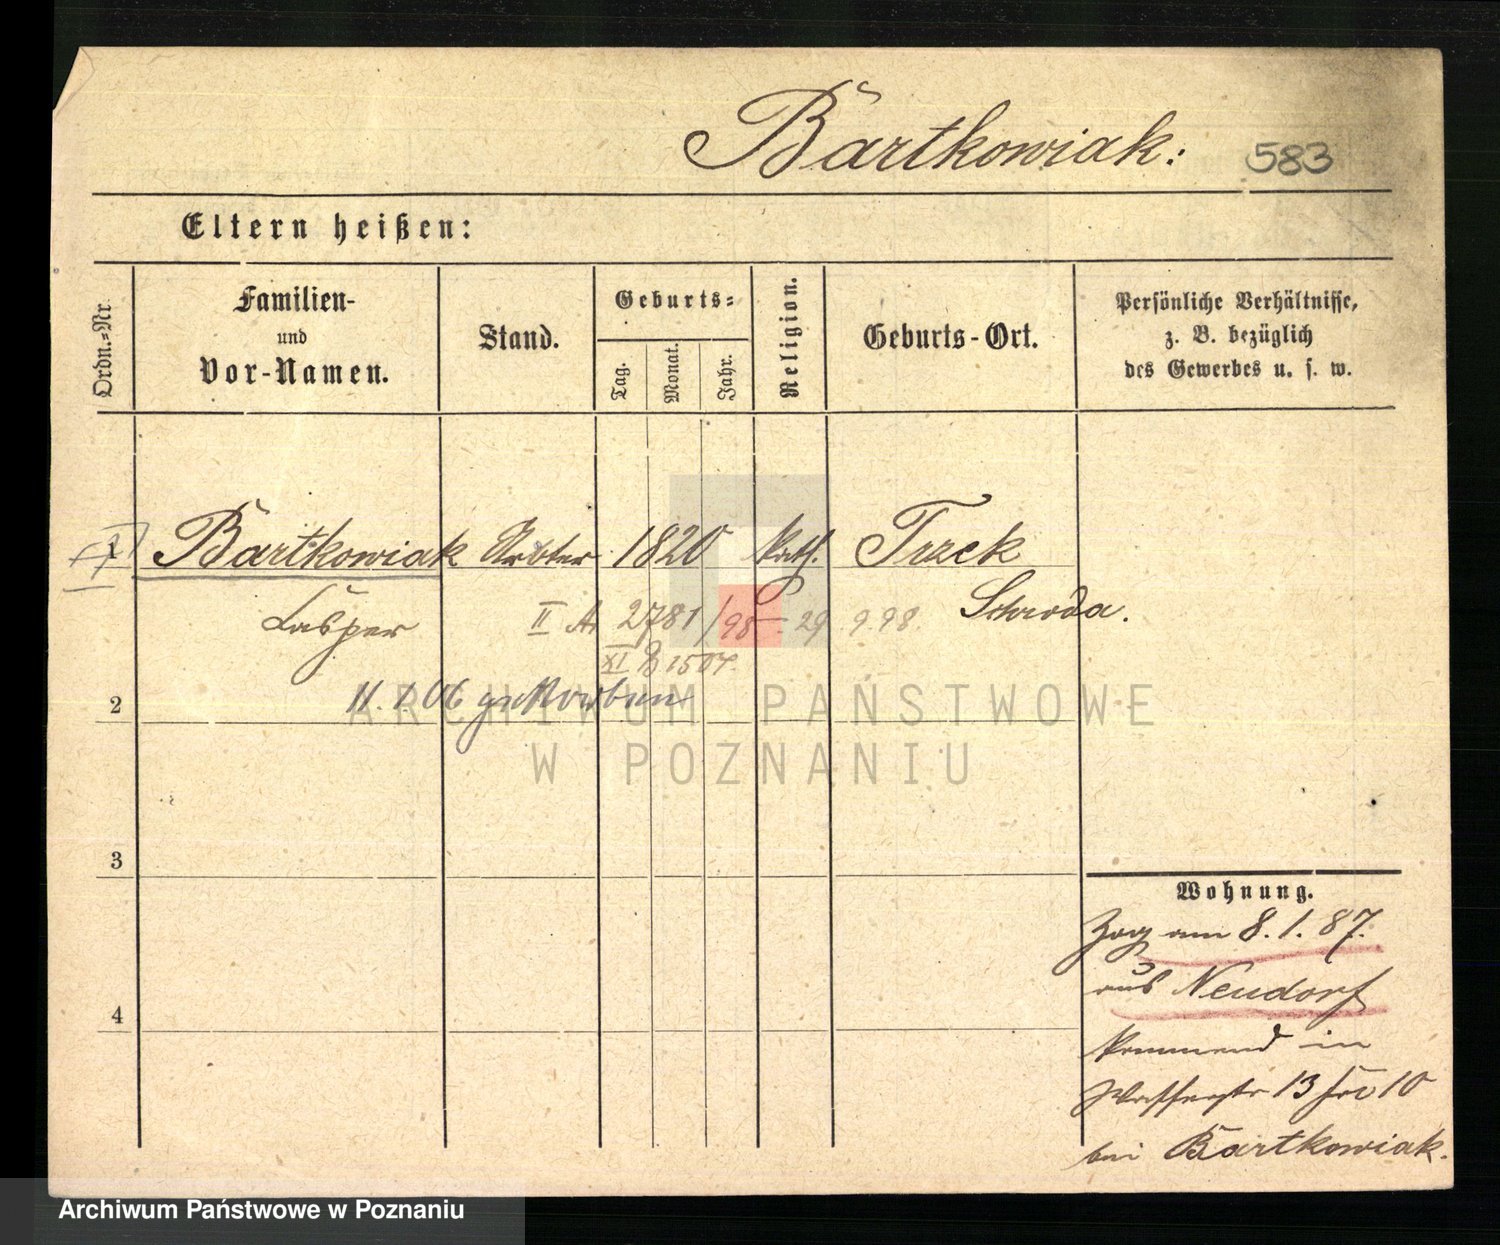 Bartkowiak: 583
Eltern heißen:
Ordn.-Nr.
Familien-
und
Vor-Namen.
Stand.
Geburts-
Tag.
Monat.
Jahr.
Religion.
Geburts-Ort.
Persönliche Verhältnisse,
z. B. bezüglich
des Gewerbes u. s. w.
1 Bartkowiak Arbter 1820 kath. Trzek
Casper Schroda.
II A 2781/98 29 9.98.
XI B 1504.
11.1.06 gestorben
2
3
4
ARCHIWUM PAŃSTWOWE
W POZNANIU
Wohnung.
Zog am 8.1.87.
aus Neudorf
kommend in
Wasserstr 13 10
bei Bartkowiak.
Archiwum Państwowe w Poznaniu